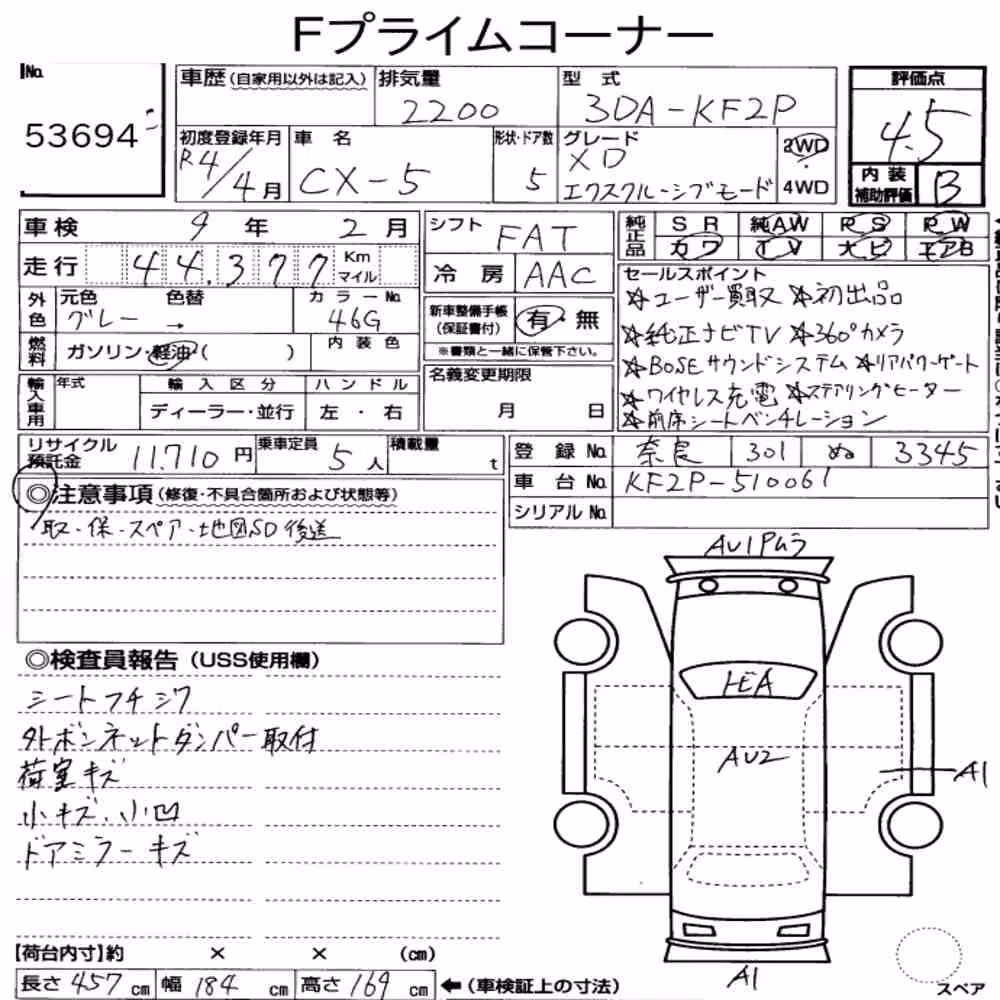 Fプライムコーナー
No.
53694
車歴 (自家用以外は記入)
排気量
2200
型式
3DA-KF2P
評価点
4.5
初度登録年月
R4/4月
車名
CX-5
形状・ドア数
5
グレード
XD
エクスクルーシブモード
2WD
・
4WD
内装
補助評価
B
車検 9年 2月
走行 44,377 Km
マイル
外色 元色 色替 カラーNo.
グレー → 46G
燃料 ガソリン・軽油( ) 内装色
輸入車用 年式 輸入区分 ハンドル
ディーラー・並行 左・右
シフト FAT
冷房 AAC
新車整備手帳
(保証書付) 有・無
※書類と一緒に保管下さい。
名義変更期限
月 日
純正品 SR 純AW PS PW
カワ TV ナビ エアB
セールスポイント
☆ユーザー買取 ☆初出品
☆純正ナビTV ☆360°カメラ
☆BOSEサウンドシステム ☆リアパワーゲート
☆ワイヤレス充電 ☆ステアリングヒーター
☆前席シートベンチレーション
リサイクル
預託金 11,710円
乗車定員 5人
積載量 t
登録No. 奈良 301 ぬ 3345
車台No. KF2P-510061
シリアルNo.
◎注意事項(修復・不具合箇所および状態等)
取・保・スペア・地図SD後送
◎検査員報告(USS使用欄)
シートフチシワ
外ボンネットダンパー取付
荷室キズ
小キズ、小凹
ドアミラーキズ
AU1Pムラ
トビA
AU2
A1
A1
【荷台内寸】約 × × (cm)
長さ 457 cm 幅 184 cm 高さ 169 cm ←(車検証上の寸法)
スペア